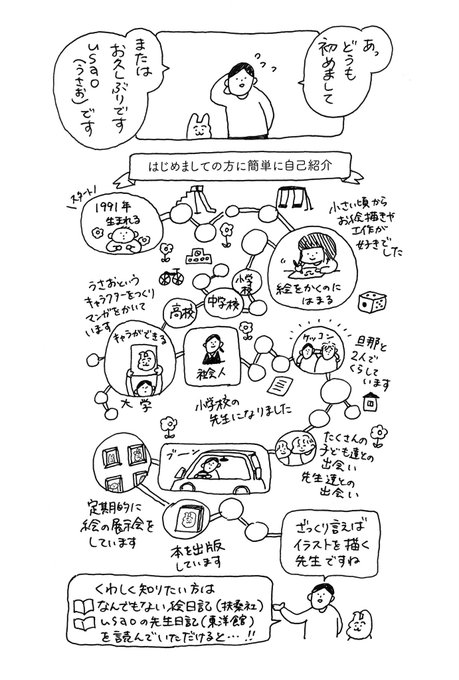 あっ
どうも
初めまして
または
お久しぶりです
usao
(うさお)です
はじめましての方に簡単に自己紹介
スタート!
1991年
生まれる
小さい頃から
お絵描きや
工作が
好きでした
絵をかくのに
はまる
小学校
中学校
高校
うさおという
キャラクターをつくり
マンガをかいて
います
キャラができる
大学
社会人
小学校の
先生になりました
ケッコン
旦那と
2人で
くらして
います
たくさんの
子ども達との
出会い
先生達との
出会い
ブーン
定期的に
絵の展示会を
しています
本を出版
しています
ざっくり言えば
イラストを描く
先生ですね
くわしく知りたい方は
なんでもない絵日記(扶桑社)
usaoの先生日記(東洋館)
を読んでいただけると…!!